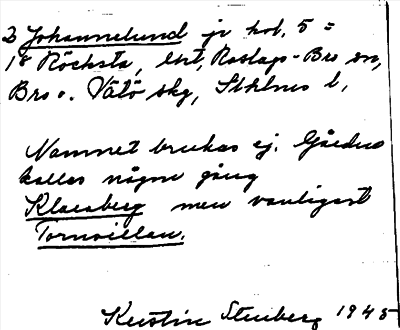 2 Johannelund jr kol. 5 =
18 Röcksta, lht, Roslags-Bro sn,
Bro o. Vätö skg, Sthlms l.
Namnet brukas ej. Gården
kallas någon gång
Klaraberg men vanligast
Tornvillan.
Kerstin Stenberg 1945